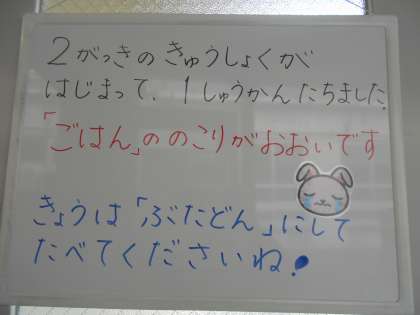 2がっきのきゅうしょくが
はじまって、1しゅうかんたちました。
「ごはん」ののこりがおおいです
きょうは「ぶたどん」にして
たべてくださいね!